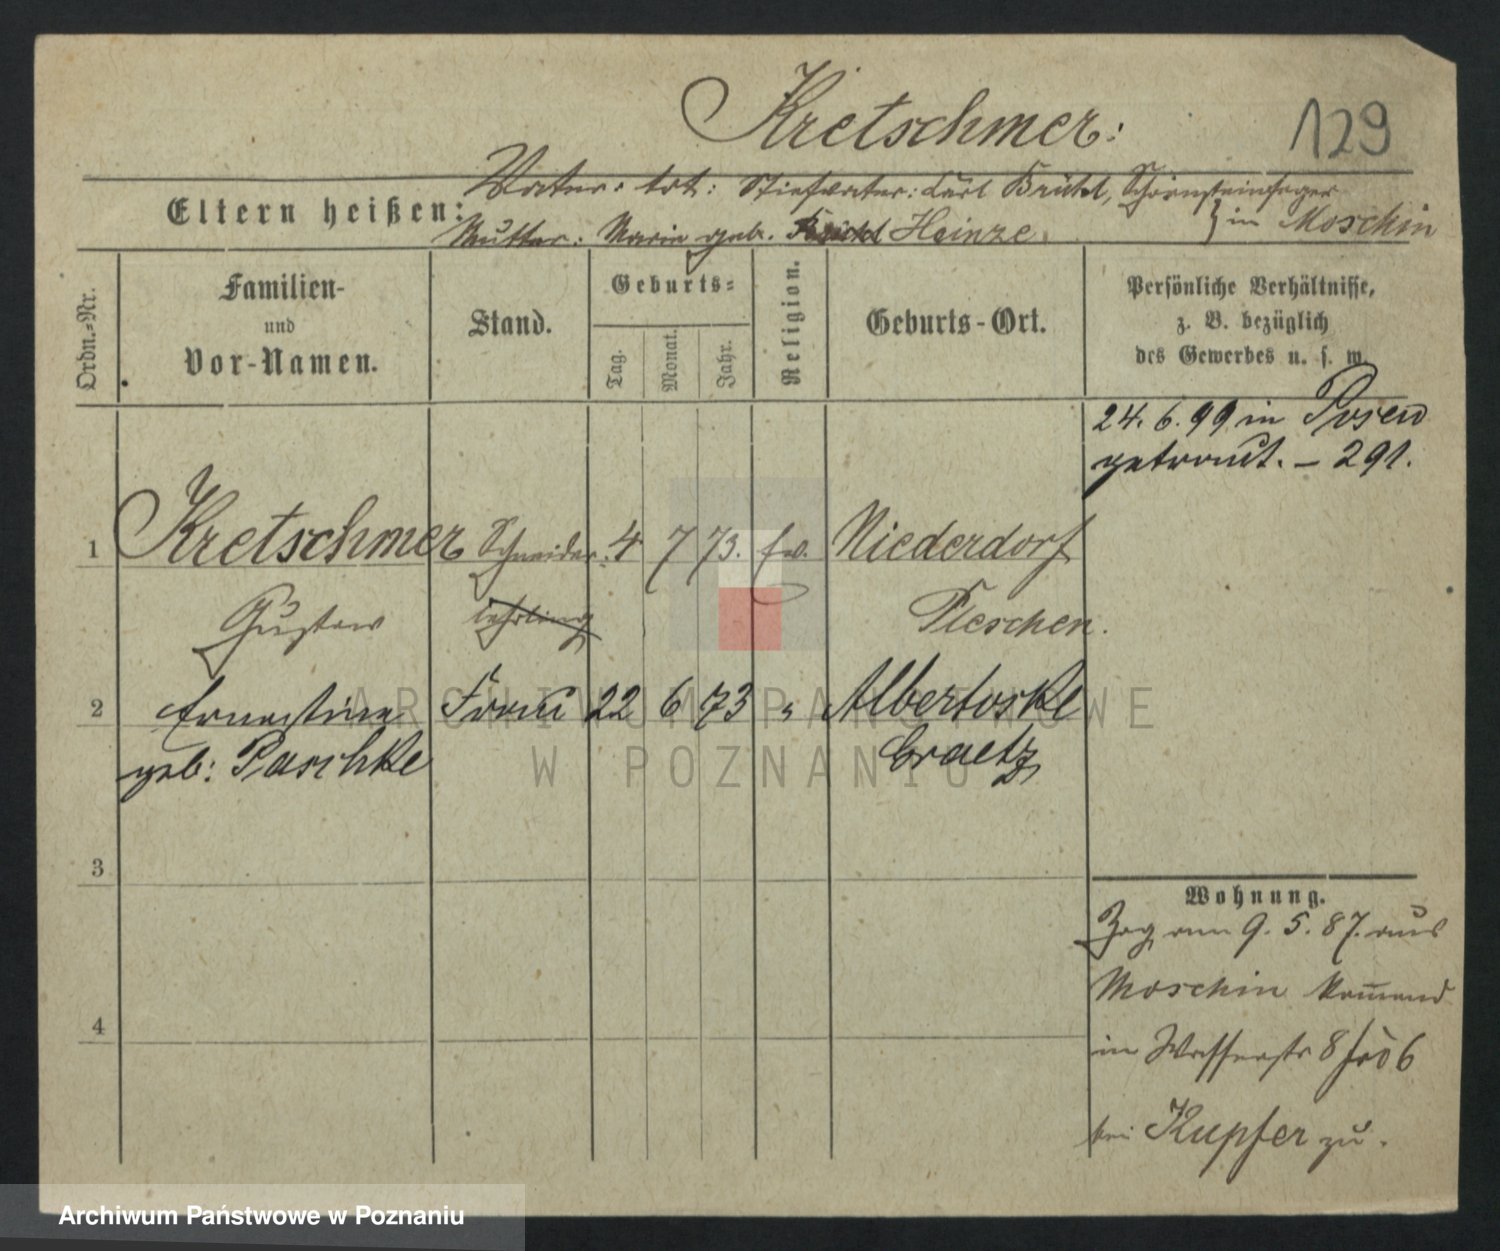 Kretschmer:
129
Eltern heißen:
Vater: tot: Stiefvater: Carl Brückl, Schornsteinfeger
Mutter: Marie geb. Heinze } in Moschin
Ordn.-Nr.
Familien-
und
Vor-Namen.
Stand.
Geburts-
Tag.
Monat.
Jahr.
Religion.
Geburts-Ort.
Persönliche Verhältnisse,
z. B. bezüglich
des Gewerbes u. s. w.
24. 6. 99 in Posen
getraut. – 291.
1 Kretschmer Schneider 4 7 73. ev. Niederdorf
Gustav lehrling Pleschen.
2 Ernestine Frau 22 6 73 " Albertoske
geb: Paschke Graetz
3
4
Wohnung.
Zog am 9. 5. 87. aus
Moschin kommend
in Wasserstr 8 6
bei Kupfer zu.
ARCHIWUM PAŃSTWOWE
W POZNANIU
Archiwum Państwowe w Poznaniu